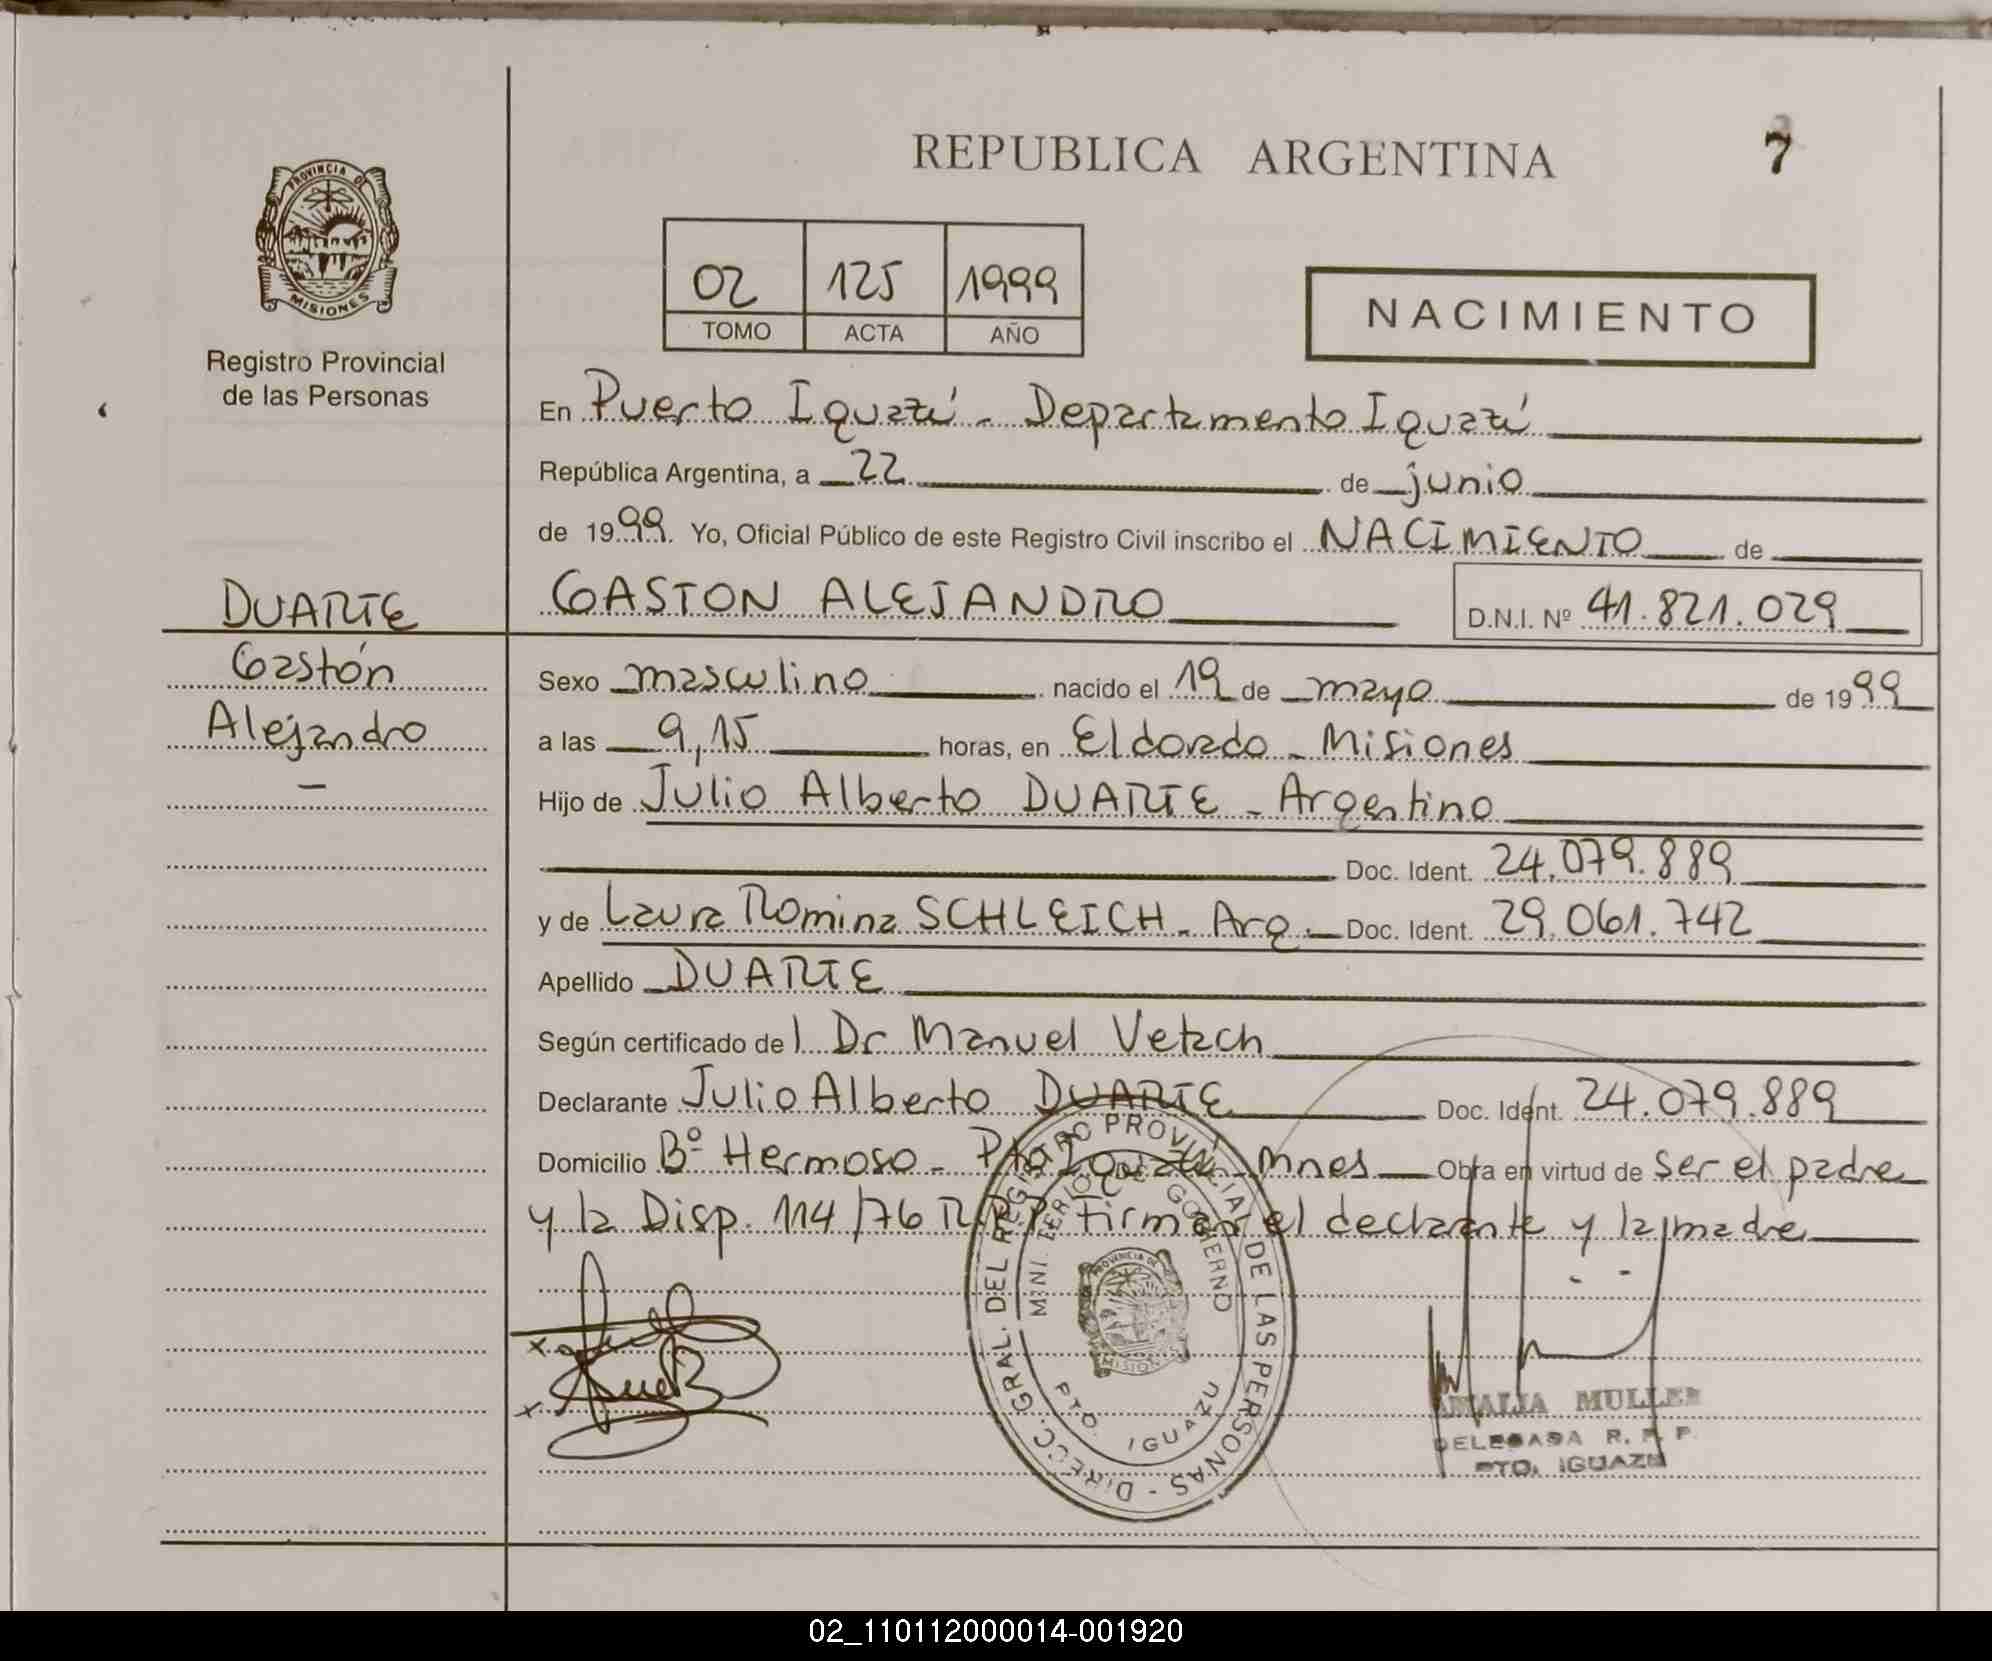 REPUBLICA ARGENTINA
7
PROVINCIA DE
MISIONES
Registro Provincial
de las Personas
02 125 1999
TOMO ACTA AÑO
NACIMIENTO
En Puerto Iguazú - Departamento Iguazú
República Argentina, a 22 de junio
de 1999. Yo, Oficial Público de este Registro Civil inscribo el NACIMIENTO de
GASTON ALEJANDRO
D.N.I. Nº 41.821.029
DUARTE
Gastón
Alejandro
-
Sexo masculino nacido el 19 de mayo de 1999
a las 9,15 horas, en Eldorado - Misiones
Hijo de Julio Alberto DUARTE - Argentino
Doc. Ident. 24.079.889
y de Laura Romina SCHLEICH - Arg. Doc. Ident. 29.061.742
Apellido DUARTE
Según certificado del Dr Manuel Vetach
Declarante Julio Alberto DUARTE Doc. Ident. 24.079.889
Domicilio Bº Hermoso - Pto Iguazú - Mnes Obra en virtud de ser el padre
y la Disp. 114/76 R.P.P. Firman el declarante y la madre
DIRECC. GRAL. DEL REGISTRO PROVINCIAL DE LAS PERSONAS -
MINISTERIO DE GOBIERNO
PROVINCIA DE
MISIONES
PTO. IGUAZU
AMALIA MULLER
DELEGADA R. P. P.
PTO. IGUAZU
02_110112000014-001920